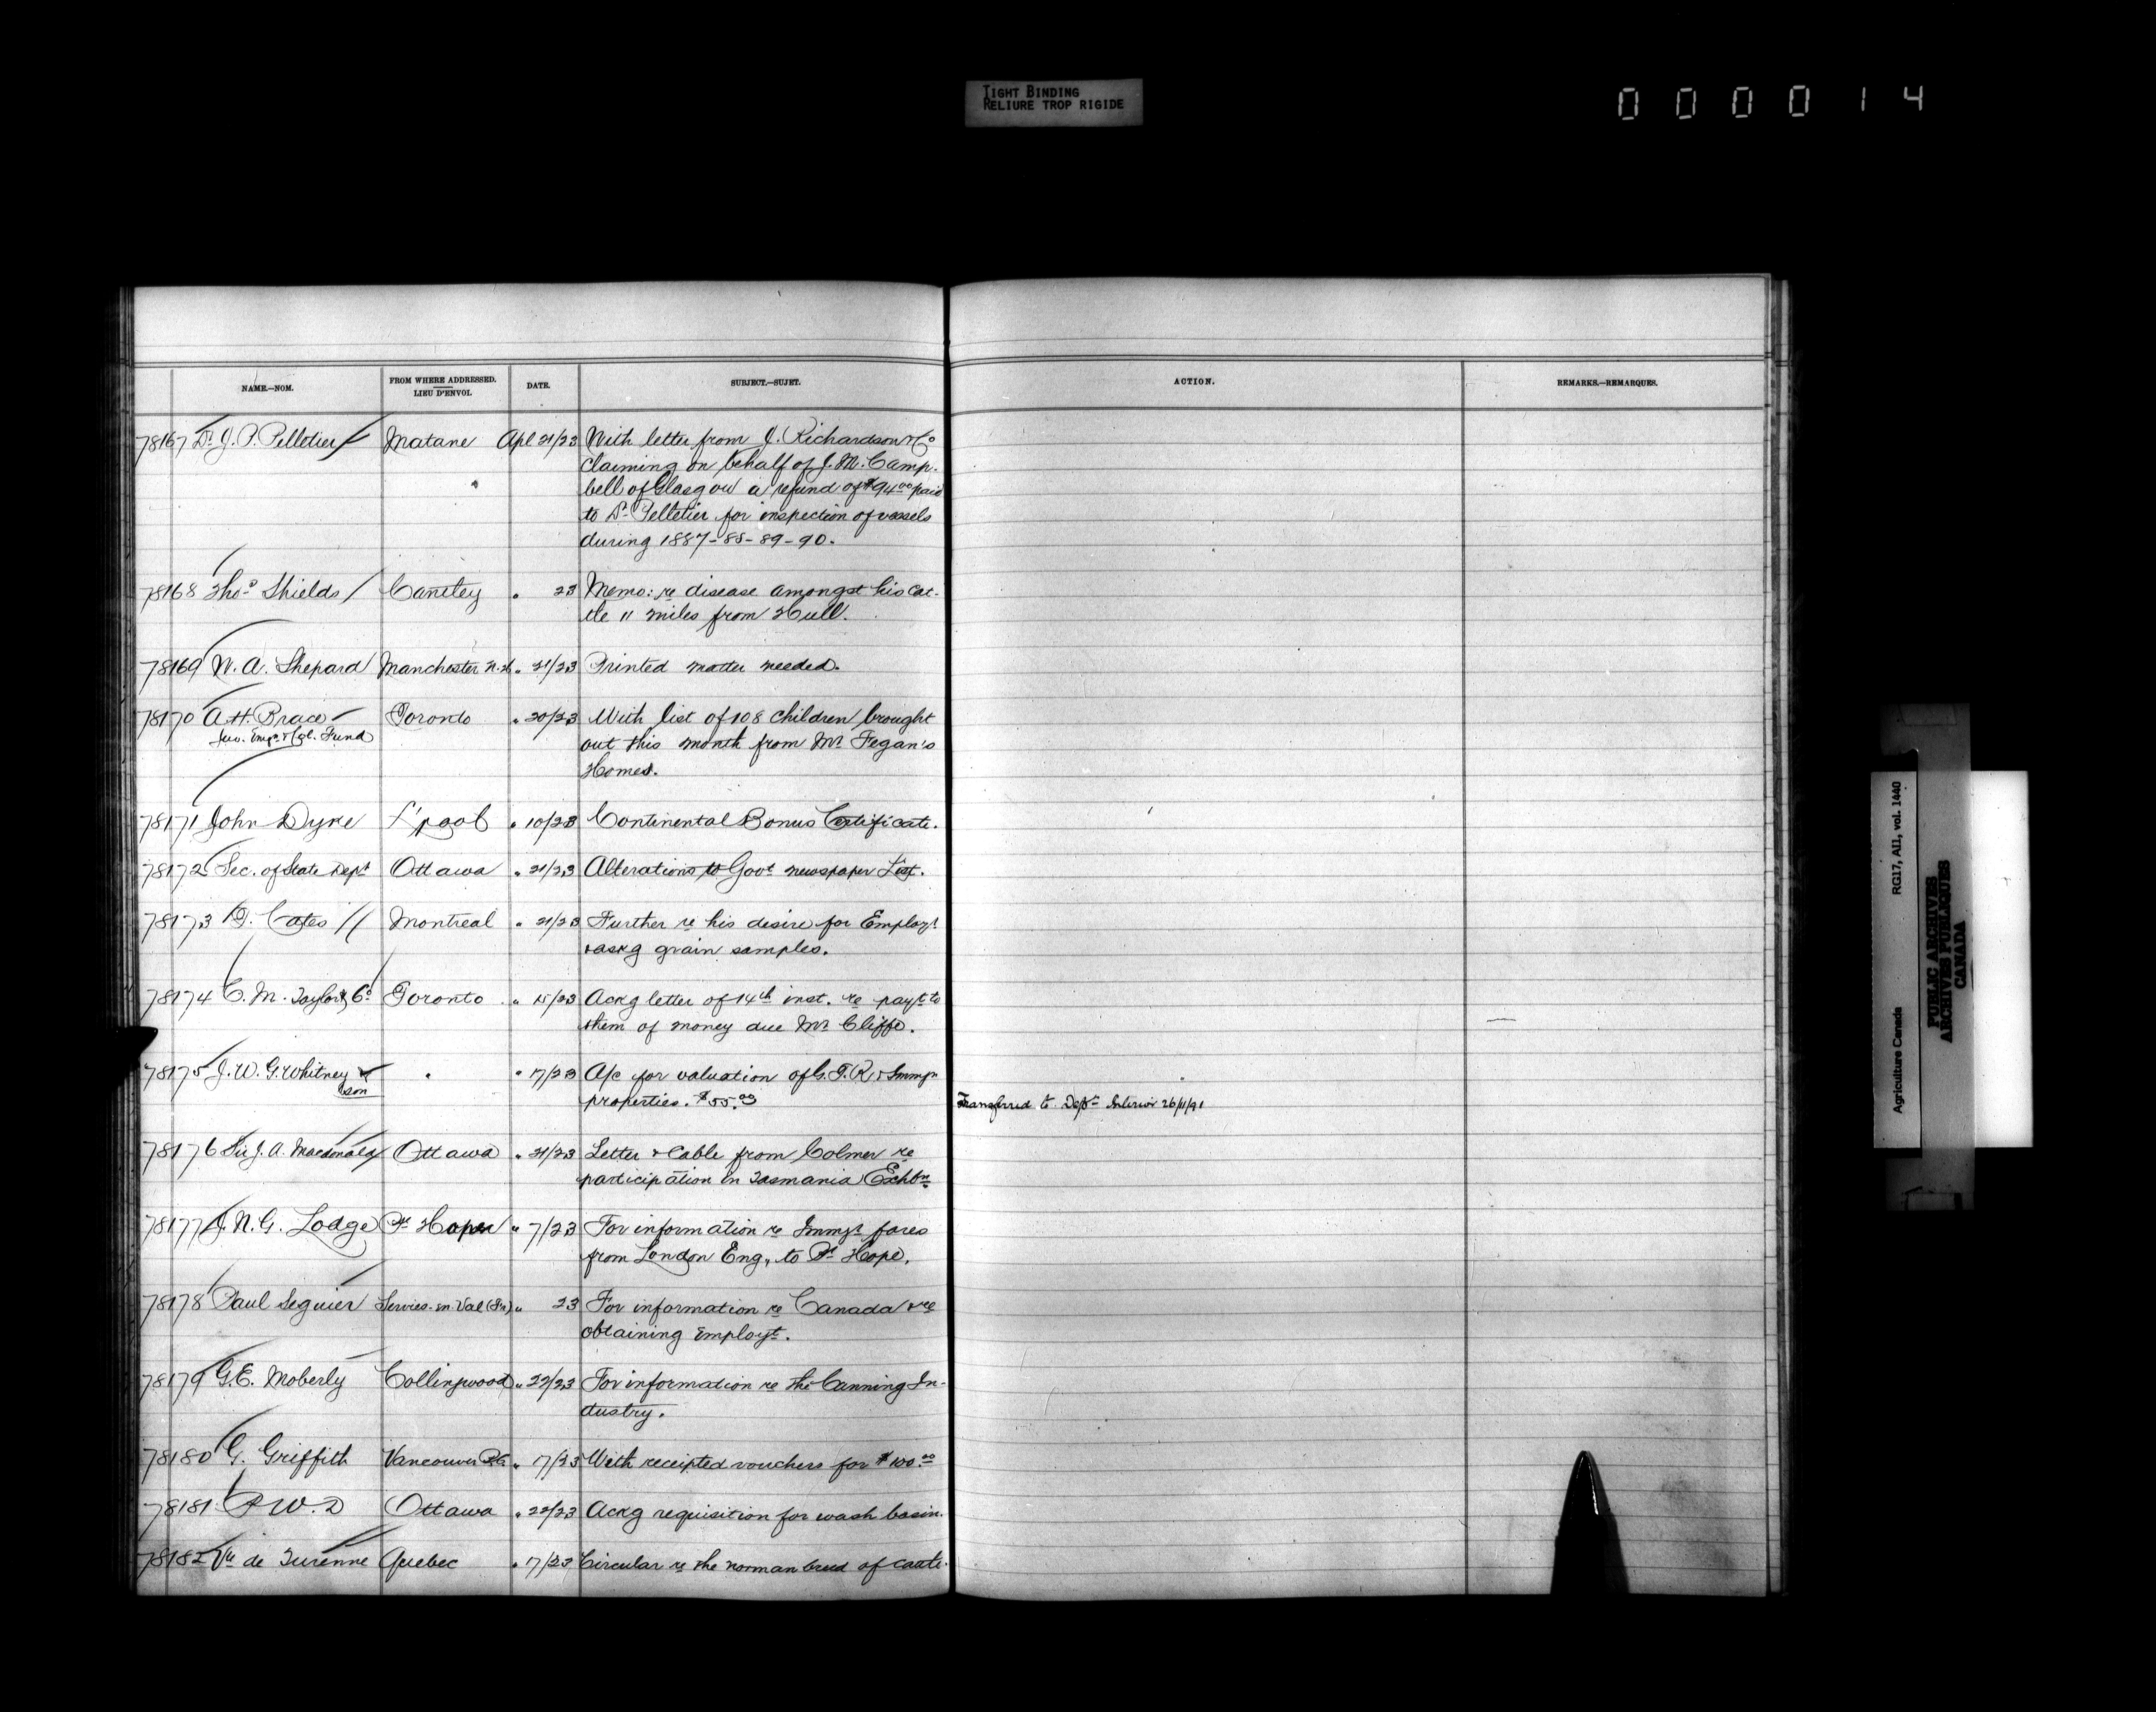 TIGHT BINDING
RELIURE TROP RIGIDE
000014
NAME.—NOM. FROM WHERE ADDRESSED. LIEU D'ENVOI. DATE. SUBJECT.—SUJET. ACTION. REMARKS.—REMARQUES.
78167 Dr J. P. Pelletier Matane Apl 21/23 With letter from J. Richardson & Co
claiming on behalf of J. M. Camp-
bell of Glasgow a refund of $94.00 paid
to Dr Pelletier for inspection of vessels
during 1887-88-89-90.
78168 Thos Shields Cantley " 23 Memo: re disease amongst his cat-
tle 11 miles from Hull.
78169 N. A. Shepard Manchester N.H. " 21/23 Printed matter needed.
78170 A. H. Brace Toronto " 20/23 With list of 108 children brought
Fund out this month from Mr Fegan's
Homes.
78171 John Dyke L'pool " 10/23 Continental Bonus Certificate.
78172 Sec. of State Dept Ottawa " 21/23 Alterations to Govt newspaper List.
78173 D. Cates Montreal " 21/23 Further re his desire for Employt
& askg grain samples.
78174 C. M. Taylor & Co Toronto " 15/23 Ackg letter of 14th inst. re payt to
them of money due Mr Cliffe.
78175 J. W. G. Whitney & " " 17/23 A/c for valuation of G. T. R. & Immgn
son properties. $55.00 Transferred to Dept Interior 26/11/91
78176 Sir J. A. Macdonald Ottawa " 21/23 Letter & Cable from Colmer re
participation in Tasmania Exhbn
78177 J. N. G. Lodge Pt Hope " 7/23 For information re Immgt fares
from London Eng., to Pt Hope.
78178 Paul Seguier Servies-en-Val " 23 For information re Canada & re
obtaining Employt.
78179 G. E. Moberly Collingwood " 22/23 For information re the Canning In-
dustry.
78180 G. Griffith Vancouver B.C. " 17/23 With receipted vouchers for $100.00
78181 P. W. D Ottawa " 22/23 Ackg requisition for wash basin.
78182 Vte de Turenne Quebec " 17/23 Circular re the norman breed of cattle.
Agriculture Canada RG17, AII, vol. 1440
PUBLIC ARCHIVES
ARCHIVES PUBLIQUES
CANADA